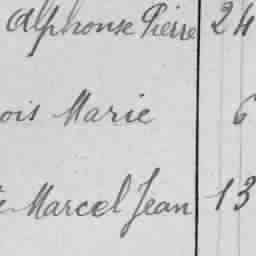 Alphonse Pierre 24
ois Marie 6
Marcel Jean 13